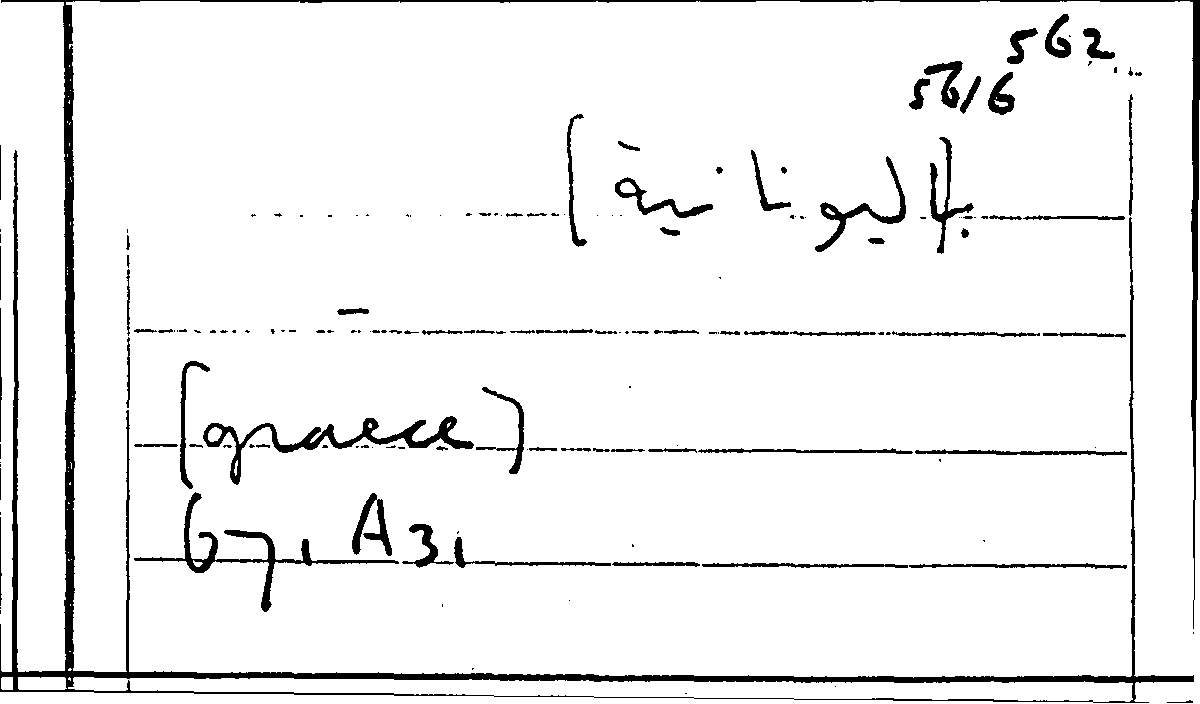 562
56/6
[باليونانية]
–
[graece]
67, A3,